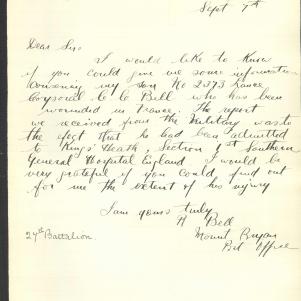 Sept 7th
Dear Sir,
I would like to know
if you could give me some information
concerning my son No 2373 Lance
Corporal C C Bell who has been
wounded in France. The report
we received from the Military was to
the efect that he had been admitted
to Kings' Heath, Section 1st Southern
General Hospital England I would be
very grateful if you could find out
for me the extent of his injury
I am yours truly
A Bell
Mount Bryan
Post Office
27th Battalion.